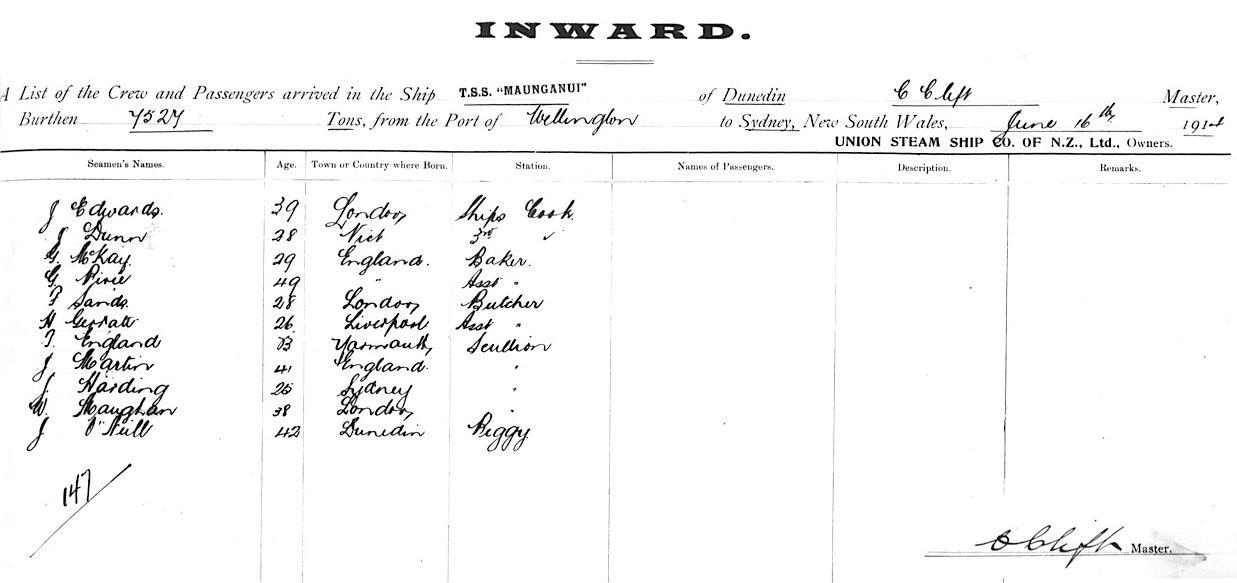 INWARD.
A List of the Crew and Passengers arrived in the Ship T.S.S. "MAUNGANUI" of Dunedin C Clift Master,
Burthen 7527 Tons, from the Port of Wellington to Sydney, New South Wales, June 16th 1914
UNION STEAM SHIP CO. OF N.Z., Ltd., Owners.
Seamen's Names. Age. Town or Country where Born. Station. Names of Passengers. Description. Remarks.
J Edwards. 39 London Ships Cook
J Dunn 28 Vict 3rd ✓
G. McKay. 29 England. Baker.
G. Pirie 49 " Asst "
Sands. 28 London Butcher
H Gerratt 26 Liverpool Asst "
England 33 Yarmouth Scullion
J Martin 41 England. "
J. Harding 25 Sydney "
W. Maughan 38 London "
J O'Neill 42 Dunedin Peggy
147
C Clift Master.